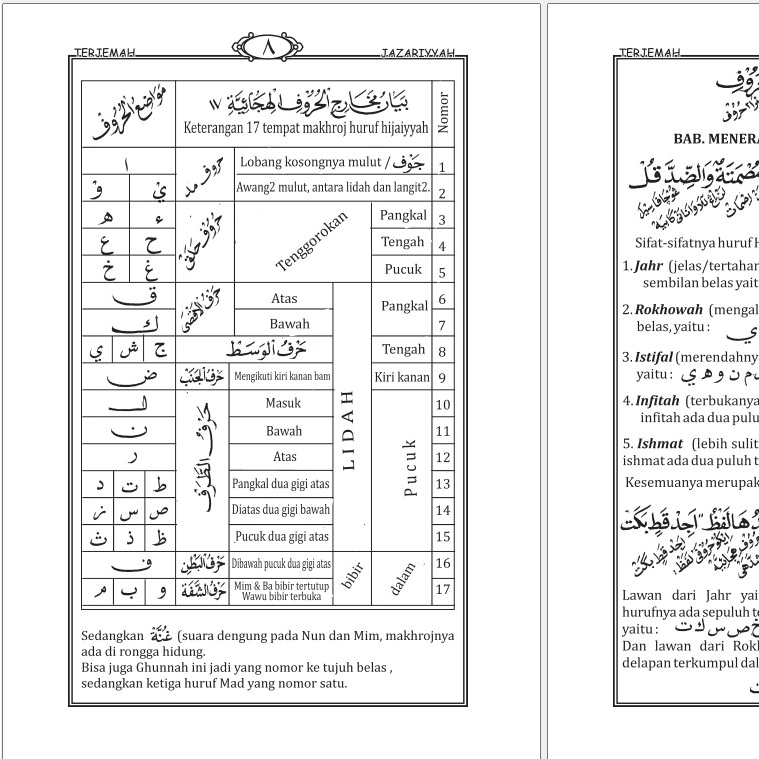 TERJEMAH ٨ JAZARIYYAH
مَوَاضِعُ الْحُرُوْفِ
بَيَانُ مَخَارِجِ الْحُرُوْفِ الْهِجَائِيَّةِ ١٧
Keterangan 17 tempat makhroj huruf hijaiyyah
Nomor
ا حروف مد Lobang kosongnya mulut / جَوْف 1
وْ يْ Awang2 mulut, antara lidah dan langit2. 2
ه ء حروف حلق Tenggorokan Pangkal 3
ع ح Tengah 4
خ غ Pucuk 5
ق Atas LIDAH Pangkal 6
ك Bawah 7
ي ش ج حَرْفُ الْوَسَطِ Tengah 8
ض حَرْفُ الْجَنْبِ Mengikuti kiri kanan bam Kiri kanan 9
ل حَرْفُ الطَّرَفِ Masuk Pucuk 10
ن Bawah 11
ر Atas 12
د ت ط Pangkal dua gigi atas 13
ز س ص Diatas dua gigi bawah 14
ث ذ ظ Pucuk dua gigi atas 15
ف حَرْفُ الْبَطْنِ Dibawah pucuk dua gigi atas bibir dalam 16
م ب و حَرْفُ الشَّفَةِ Mim & Ba bibir tertutup 17
Wawu bibir terbuka
Sedangkan غُنَّةْ (suara dengung pada Nun dan Mim, makhrojnya
ada di rongga hidung.
Bisa juga Ghunnah ini jadi yang nomor ke tujuh belas ,
sedangkan ketiga huruf Mad yang nomor satu.
TERJEMAH
BAB. MENERA
Sifat-sifatnya huruf H
1. Jahr (jelas/tertahan
sembilan belas yait
2. Rokhowah (mengal
belas, yaitu :
3. Istifal (merendahny
yaitu : م ن و ه ي
4. Infitah (terbukanya
infitah ada dua pulu
5. Ishmat (lebih sulit
ishmat ada dua puluh t
Kesemuanya merupak
Lawan dari Jahr yai
hurufnya ada sepuluh te
yaitu : خ ص س ك ت
Dan lawan dari Rokh
delapan terkumpul dal